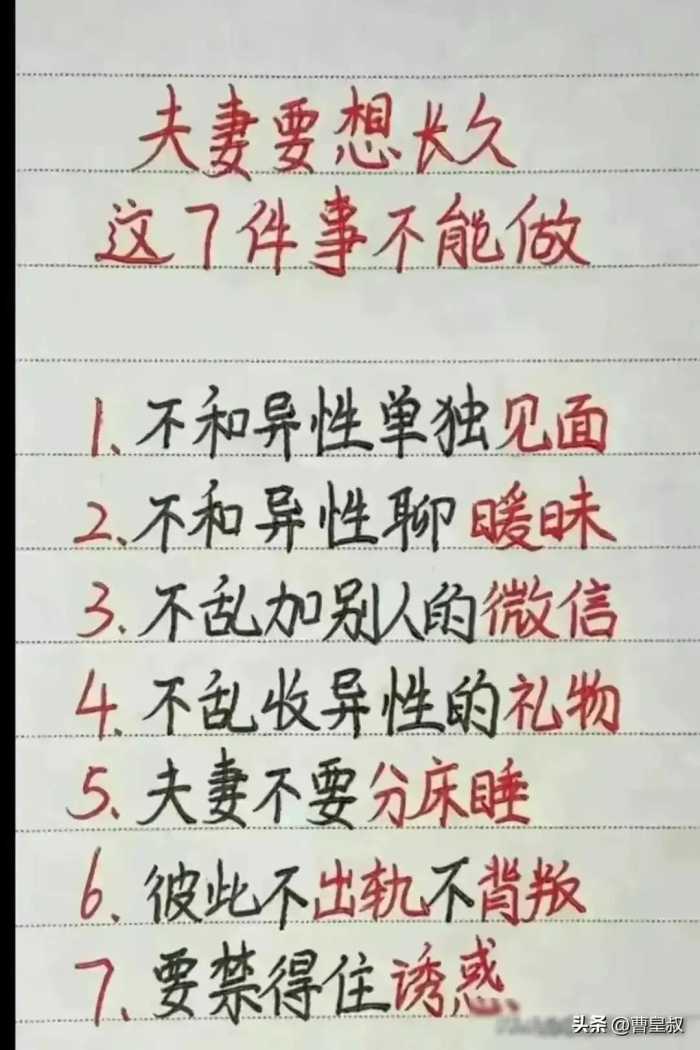 夫妻要想长久
这7件事不能做
1、不和异性单独见面
2、不和异性聊暖昧
3、不乱加别人的微信
4、不乱收异性的礼物
5、夫妻不要分床睡
6、彼此不出轨不背叛
7、要禁得住诱惑、
头条 @曹皇叔